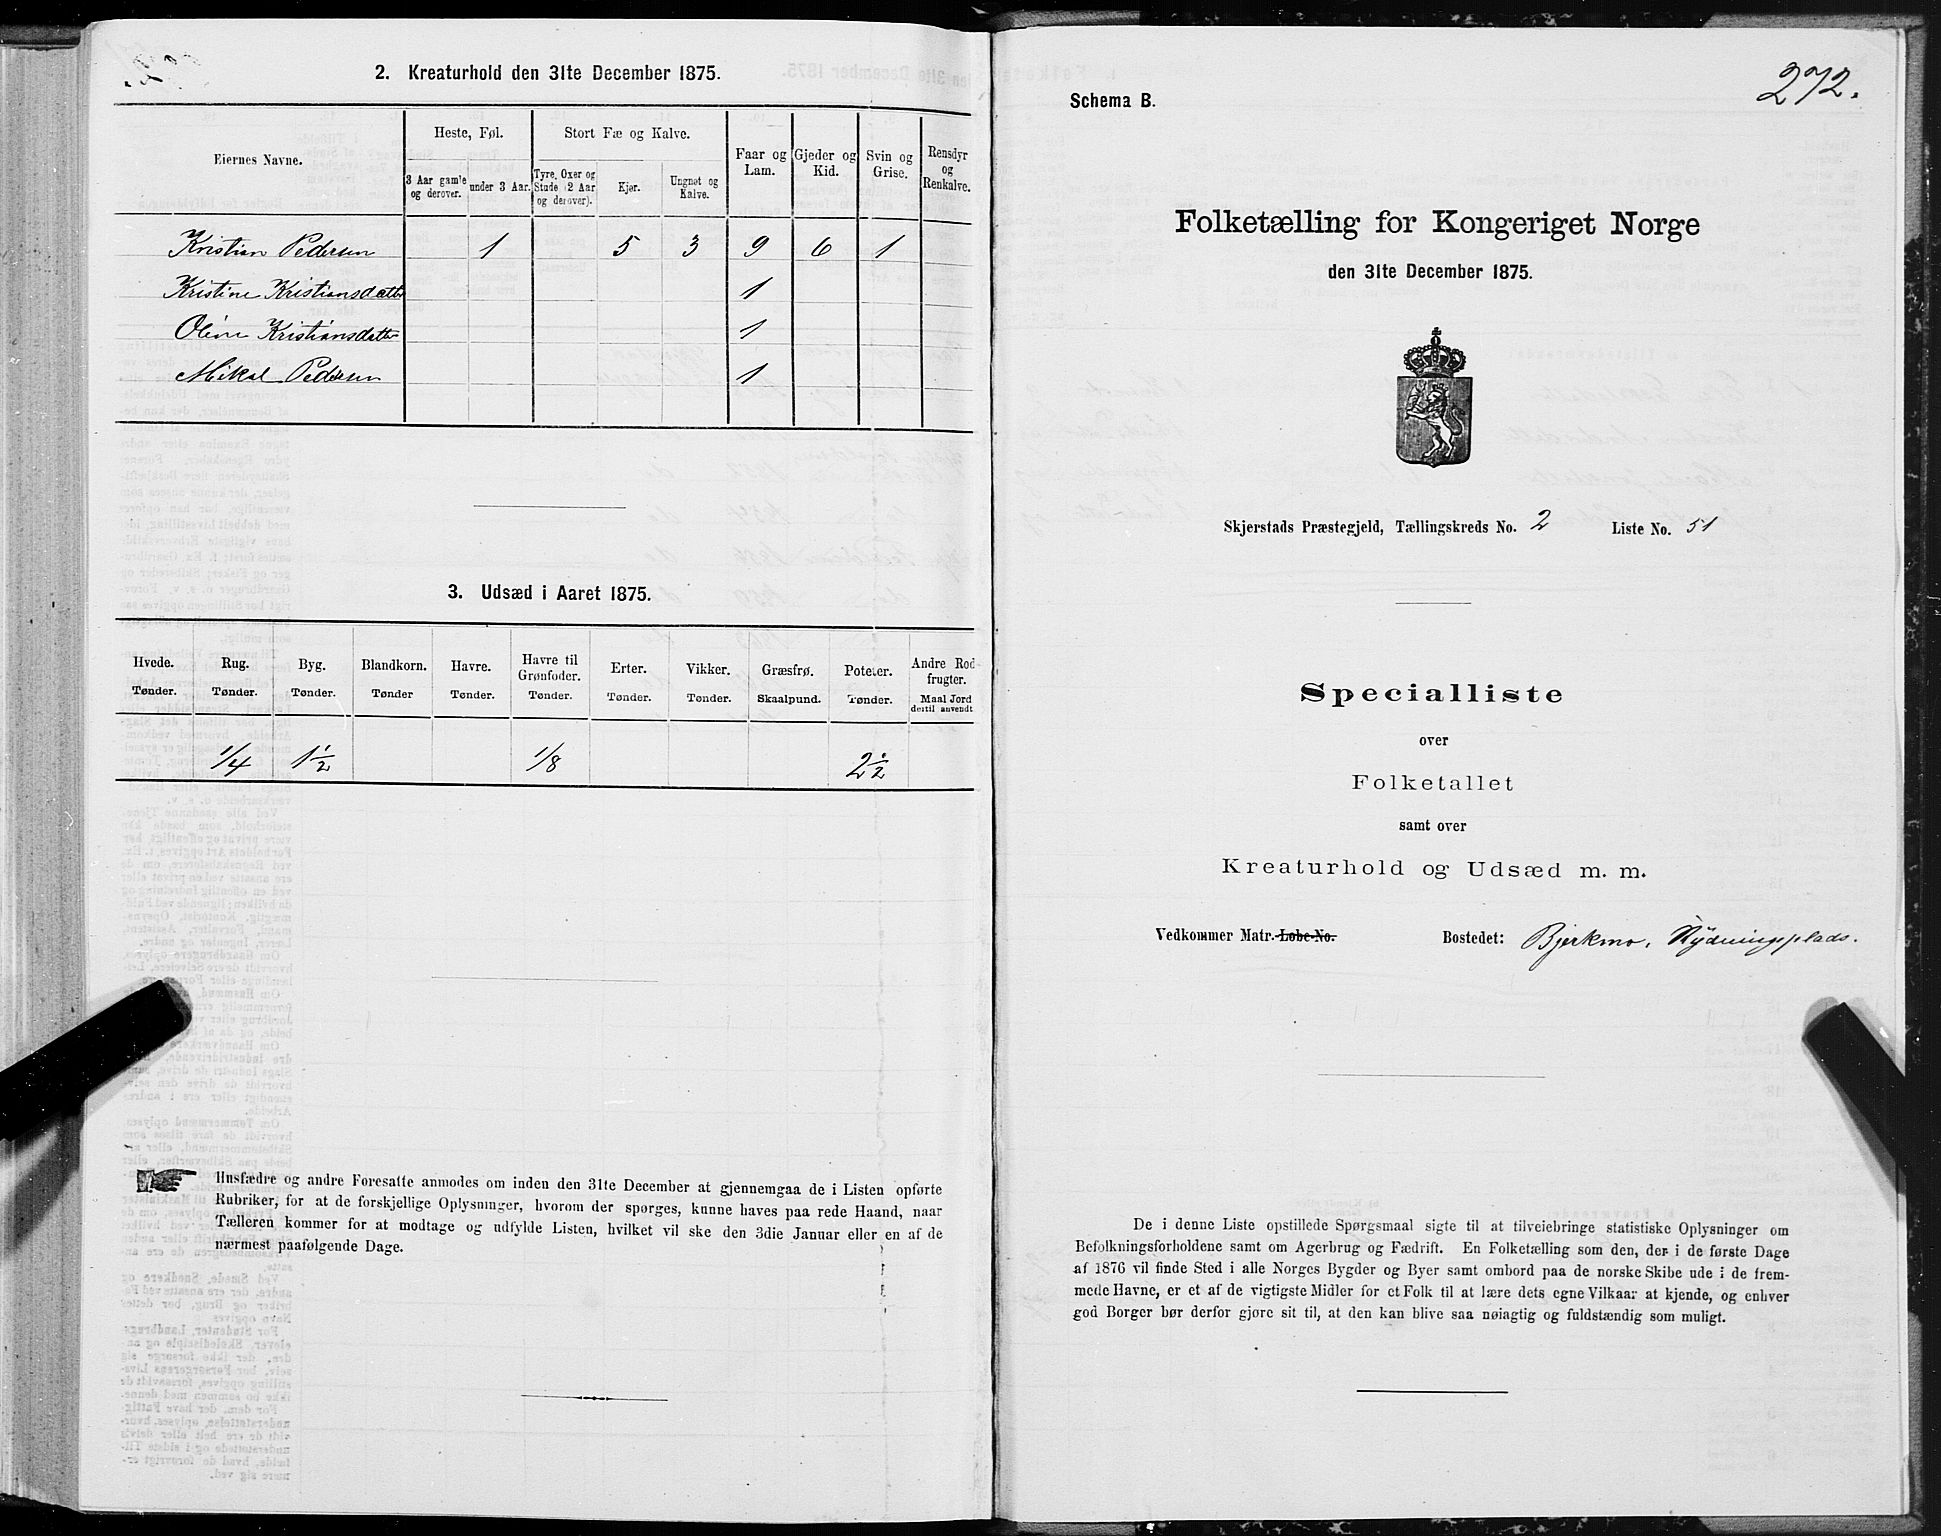 2. Kreaturhold den 31te December 1875.
Eiernes Navne.
Heste, Føl.
Stort Fæ og Kalve.
Faar og Lam.
Gjeder og Kid.
Svin og Grise.
Rensdyr og Renkalve.
3 Aar gamle og derover.
under 3 Aar.
Tyre, Oxer og Stude (2 Aar og derover).
Kjør.
Ungnøt og Kalve.
Kristian Pedersen 1 5 3 9 6 1
Kristine Kristiansdatter 1
Oline Kristiansdatter 1
Mikal Pedersen 1
3. Udsæd i Aaret 1875.
Hvede. Rug. Byg. Blandkorn. Havre. Havre til Grønfoder. Erter. Vikker. Græsfrø. Poteter. Andre Rodfrugter.
Tønder. Tønder. Tønder. Tønder Tønder. Tønder. Tønder. Tønder. Skaalpund. Tønder. Maal Jord dertil anvendt
1/4 1 1/2 1/8 2 1/2
Husfædre og andre Foresatte anmodes om inden den 31te December at gjennemgaa de i Listen opførte
Rubriker, for at de forskjellige Oplysninger, hvorom der spørges, kunne haves paa rede Haand, naar
Tælleren kommer for at modtage og udfylde Listen, hvilket vil ske den 3die Januar eller en af de
nærmest paafølgende Dage.
272.
Schema B.
Folketælling for Kongeriget Norge
den 31te December 1875.
Skjerstads Præstegjeld, Tællingskreds No. 2 Liste No. 51
Specialliste
over
Folketallet
samt over
Kreaturhold og Udsæd m. m.
Vedkommer Matr. Løbe-No. Bostedet: Bjerkmo, Rydningsplads.
De i denne Liste opstillede Spørgsmaal sigte til at tilveiebringe statistiske Oplysninger om
Befolkningsforholdene samt om Agerbrug og Fædrift. En Folketælling som den, der i de første Dage
af 1876 vil finde Sted i alle Norges Bygder og Byer samt ombord paa de norske Skibe ude i de frem-
mede Havne, er et af de vigtigste Midler for et Folk til at lære dets egne Vilkaar at kjende, og enhver
god Borger bør derfor gjøre sit til, at den kan blive saa nøiagtig og fuldstændig som muligt.